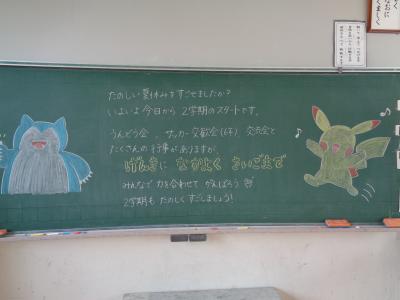 たのしい夏休みをすごせましたか?
いよいよ今日から 2学期のスタートです。
うんどう会、サッカー交歓会(6年)、交流会と
たくさんの行事がありますが、
げんきに なかよく さいごまで
みんなで 力を合わせて がんばろう
2学期も たのしくすごしましょう!